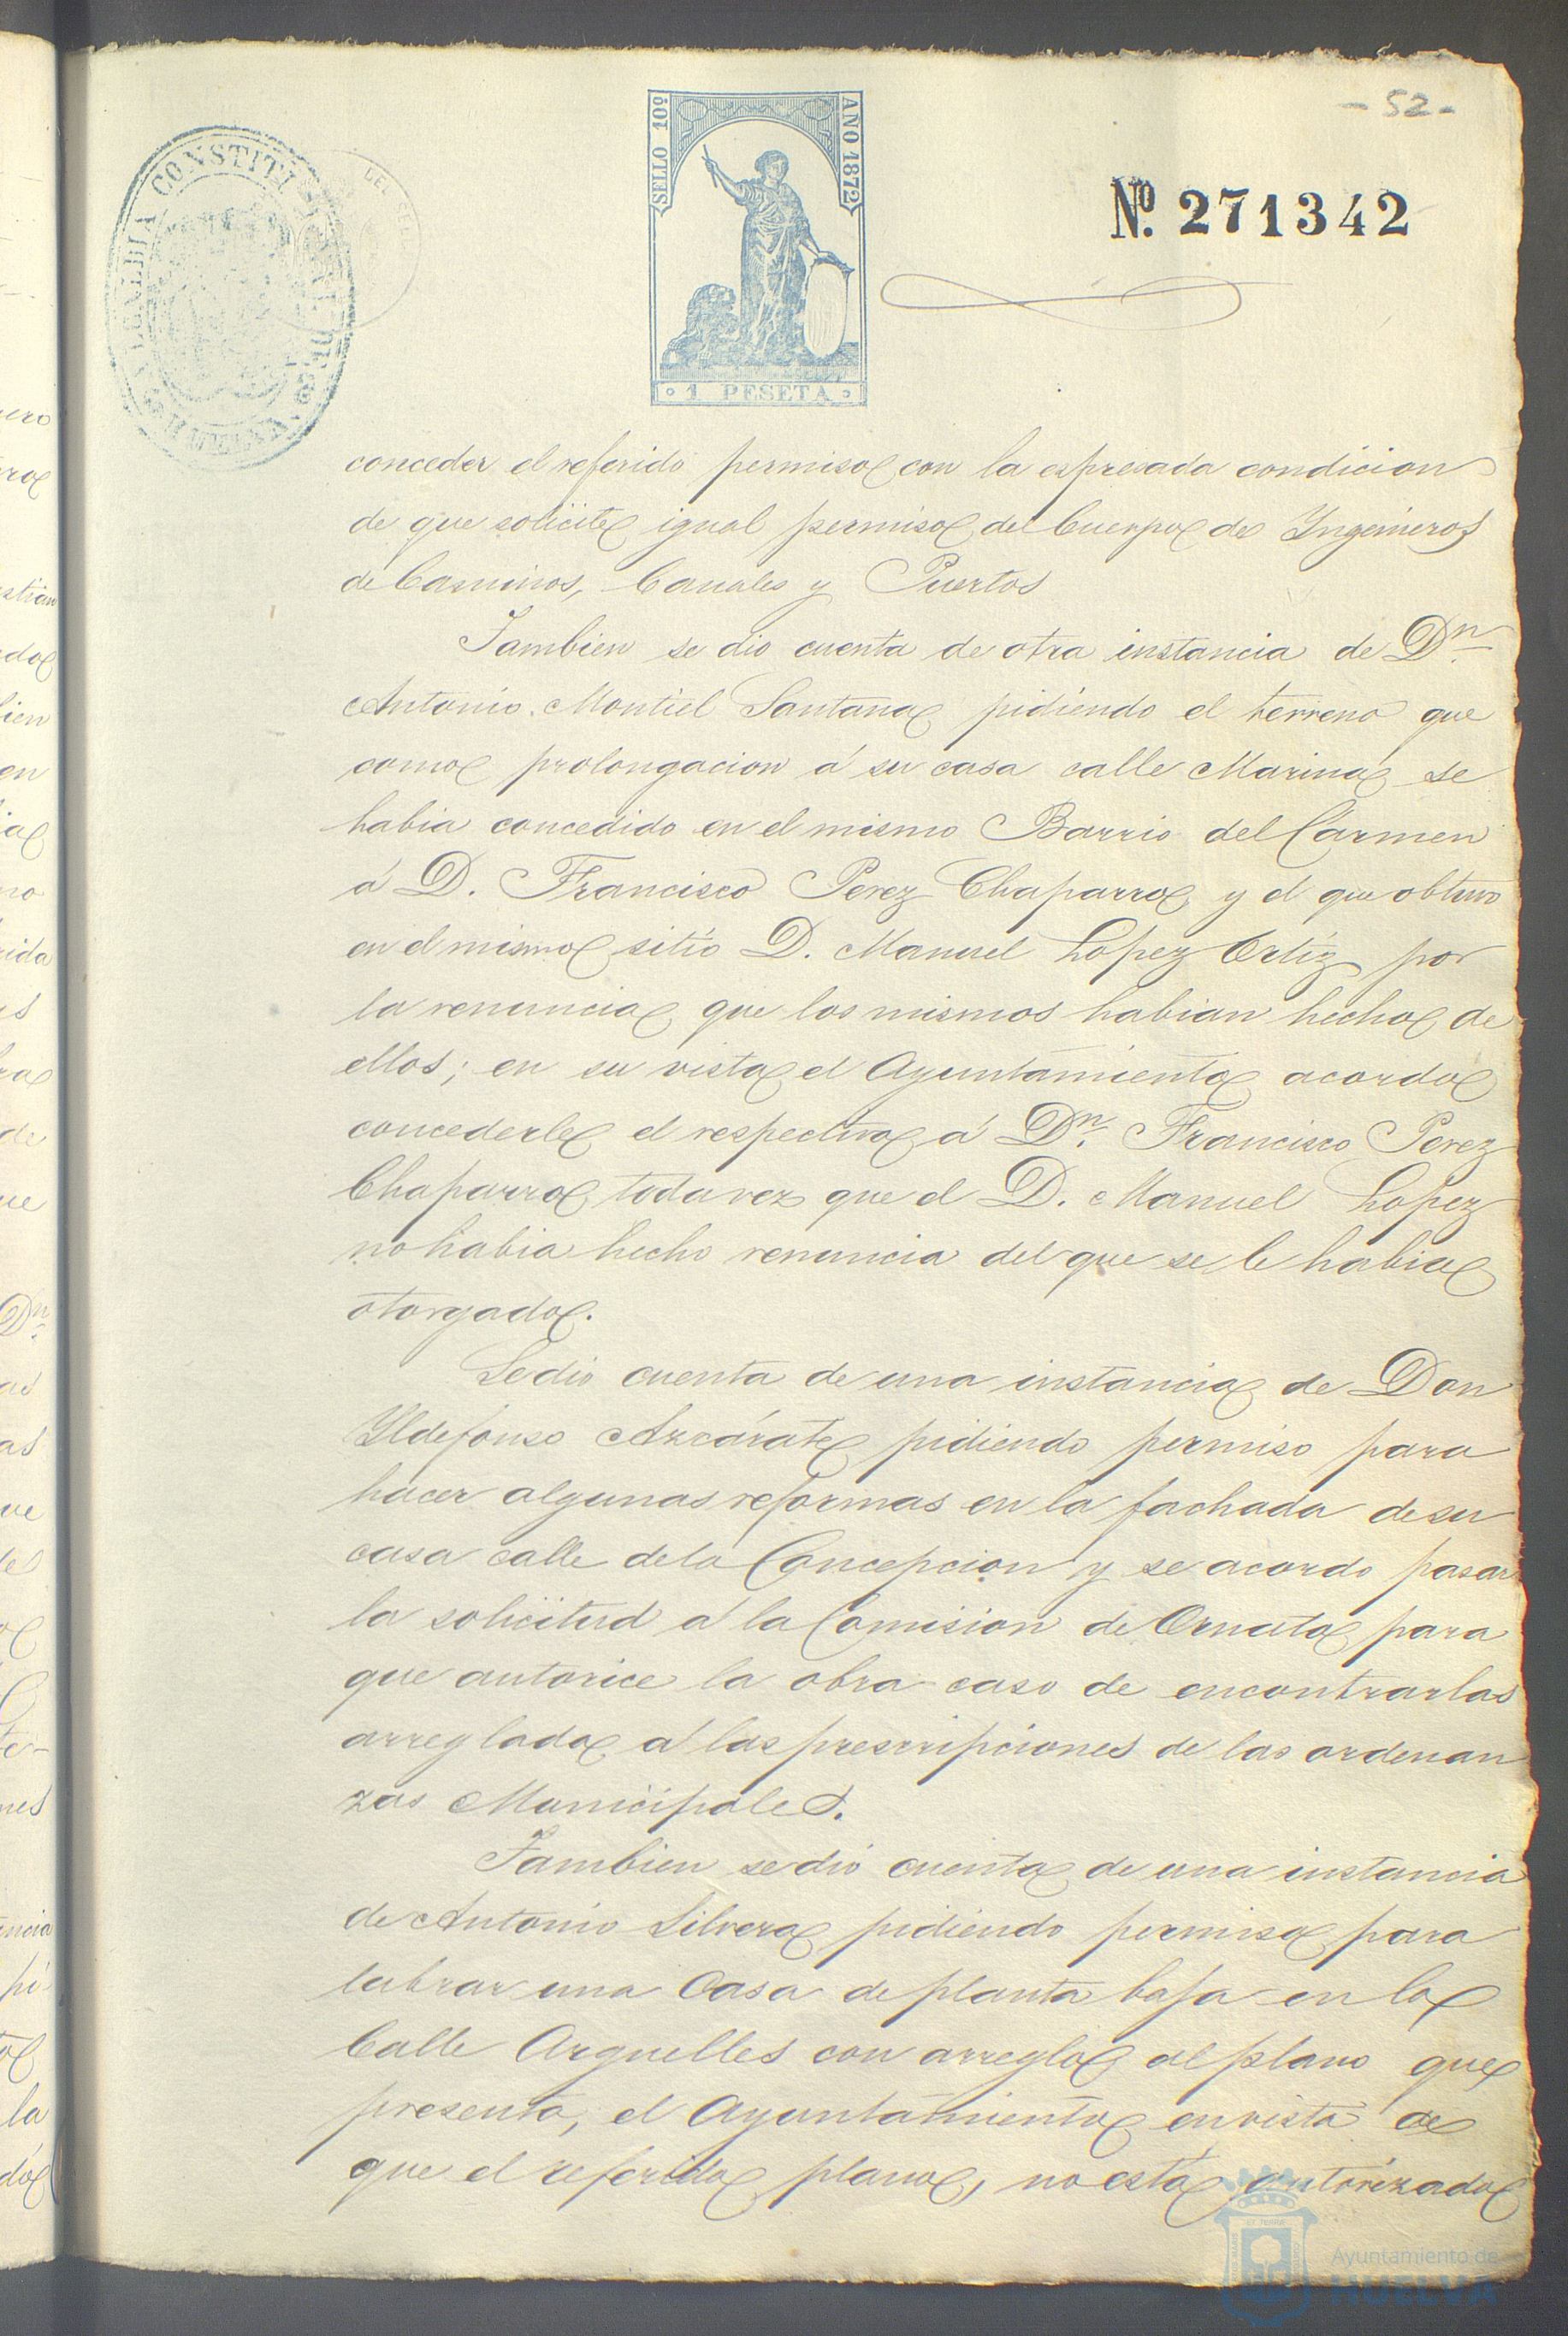 - 52 -
SELLO 10º
AÑO 1872
Nº. 271342
ALCALDIA CONSTITUCIONAL DE HUELVA
1 PESETA
conceder el referido permiso con la espresada condicion
de que solicite igual permiso del Cuerpo de Yngenieros
de Caminos, Canales y Puertos
Tambien se dio cuenta de otra instancia de Dn.
Antonio Montiel Santana pidiendo el terreno que
como prolongacion á su casa calle Marina se
habia concedido en el mismo Barrio del Carmen
á D. Francisco Perez Chaparro y el que obtuvo
en el mismo sitio D. Manuel Lopez Ortiz por
la renuncia que los mismos habian hecho de
ellos; en su vista el Ayuntamiento acordo
concederle el respectivo á Dn. Francisco Perez
Chaparro toda vez que el D. Manuel Lopez
no habia hecho renuncia del que se le habia
otorgado.
Se dio cuenta de una instancia de Don
Yldefonso Azcárate pidiendo permiso para
hacer algunas reformas en la fachada de su
casa calle de la Concepcion y se acordo pasar
la solicitud á la Comision de Ornato para
que autorice la obra caso de encontrarlas
arreglado á las prescripciones de las ordenan
zas Municipales.
Tambien se dió cuenta de una instancia
de Antonio Silvera pidiendo permiso para
labrar una Casa de planta baja en la
Calle Arguelles con arreglo al plano que
presenta, el Ayuntamiento en vista de
que el referido plano, no está autorizado
Ayuntamiento de
HUELVA